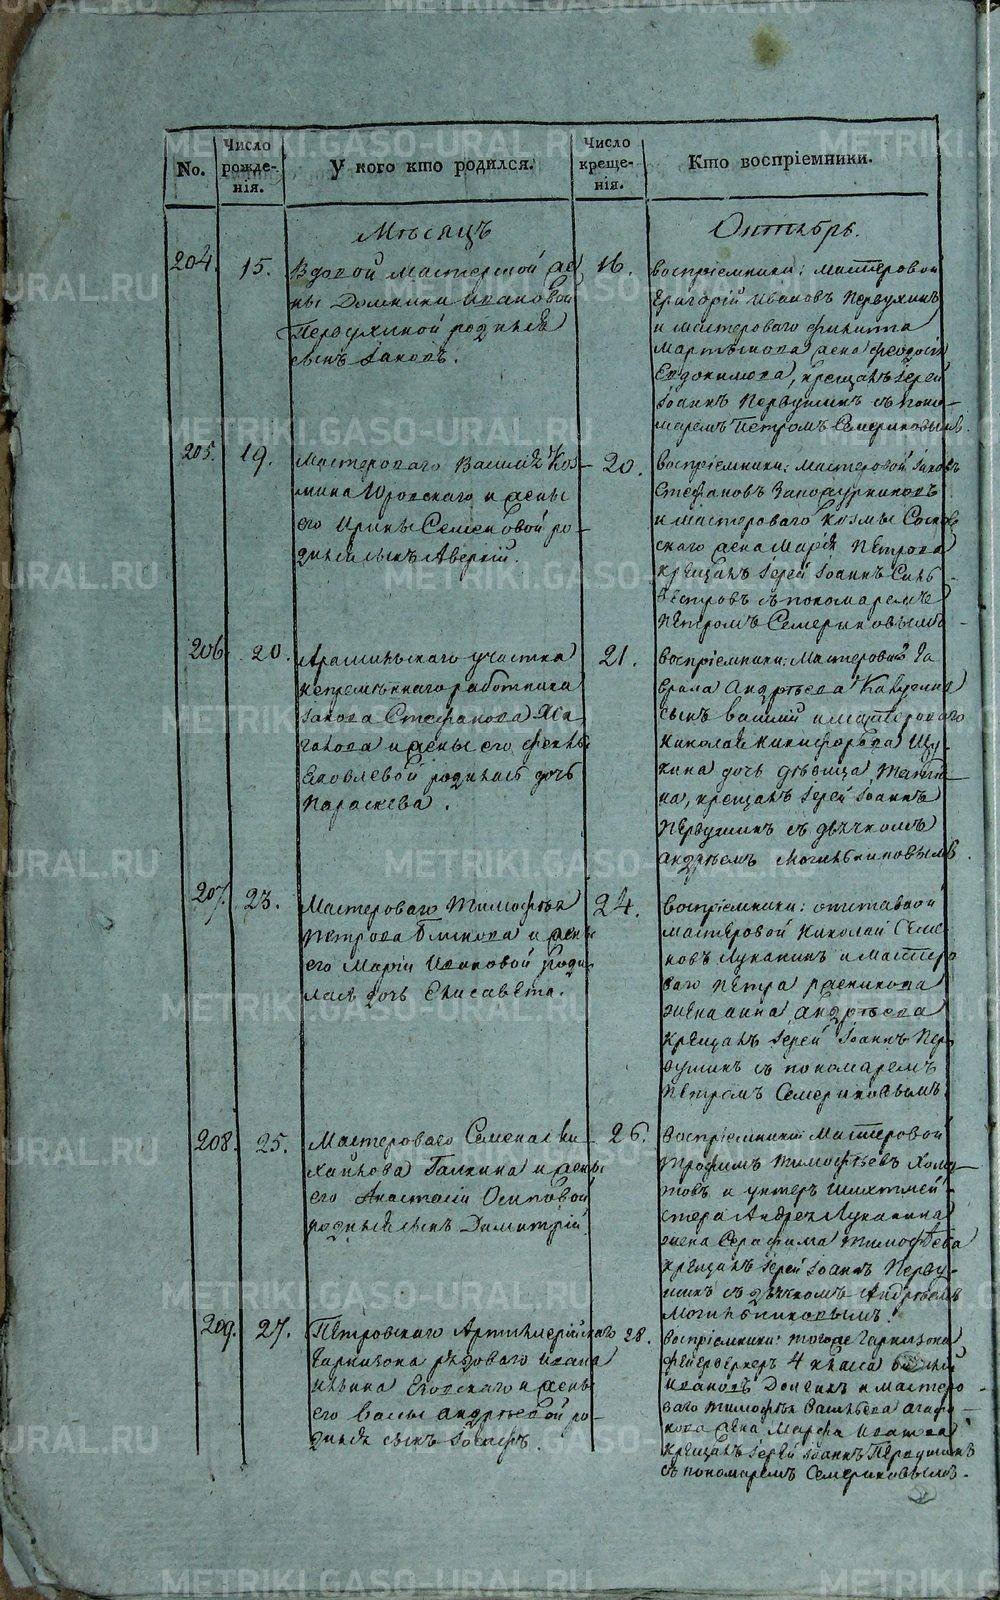 No.
Число рожде-нія.
У кого кто родился.
Число креще-нія.
Кто воспріемники.
Мѣсяцъ
Октябрь.
204.
15.
Вдовой Мастерской же
ны Домники Ивановой
Первухиной родился
сынъ Іаковъ.
16.
воспріемники: мастеровой
Григорій Ивановъ Первухинъ
и мастероваго Филиппа
жена Феодосія
Евдокимова, крещалъ Іерей
Іоаннъ Первушинъ съ поно-
маремъ Петромъ Семериковымъ.
205.
19.
Мастероваго Василія Коз-
мина и жены
его Ирины Семеновой ро-
дился сынъ Аверкій.
20.
воспріемники: мастеровой Іаковъ
Стефановъ
и мастероваго Козмы
скаго жена Марія Петрова
крещалъ Іерей Іоаннъ Силь-
вестровъ съ пономаремъ
Петромъ Семериковымъ
206.
20.
Арамильскаго участка
непремѣннаго работника
Іакова Стефанова
и жены его Феклы
Яковлевой родилась дочь
Параскева.
21.
воспріемники: Мастероваго Га
врила Андреева
сынъ Василій и мастероваго
Николая Никифорова Щу-
кина дочь дѣвица Татья-
на, крещалъ Іерей Іоаннъ
Первушинъ съ дьячкомъ
Андреемъ Могильниковымъ.
207.
23.
Мастероваго Тимофея
Петрова и жены
его Маріи Исаковой роди-
лась дочь Елисавета.
24.
воспріемники: отставной
мастеровой Николай Семе
новъ Луканинъ и мастеро
ваго Петра
жена Анна Андреева
крещалъ Іерей Іоаннъ Пер
вушинъ съ пономаремъ
Петромъ Семериковымъ.
208.
25.
Мастероваго Семена Ми
хайлова Галкина и жены
его Анастасіи Осиповой
родился сынъ Димитрій
26.
воспріемники Мастеровой
Трофимъ Тимофеевъ
и унтеръ Шихтмей-
стера Андрея Луканина
жена Серафима Тимофеева
крещалъ Іерей Іоаннъ Перву-
шинъ съ дьячкомъ Андреемъ
Могильниковымъ.
209.
27.
Петровскаго Артиллерійскаго
Гарнизона рядоваго Ивана
Ильина и жены
его Андреевой ро-
дился сынъ Іосифъ.
28.
воспріемники: тогоже Гарнизона
фейерверкеръ 4 класса
Ивановъ и мастеро-
ваго Тимофея Васильева Агафо-
нова жена Марфа Иванова
крещалъ Іерей Іоаннъ Первушинъ
съ пономаремъ Семериковымъ.
METRIKI.GASO-URAL.RU